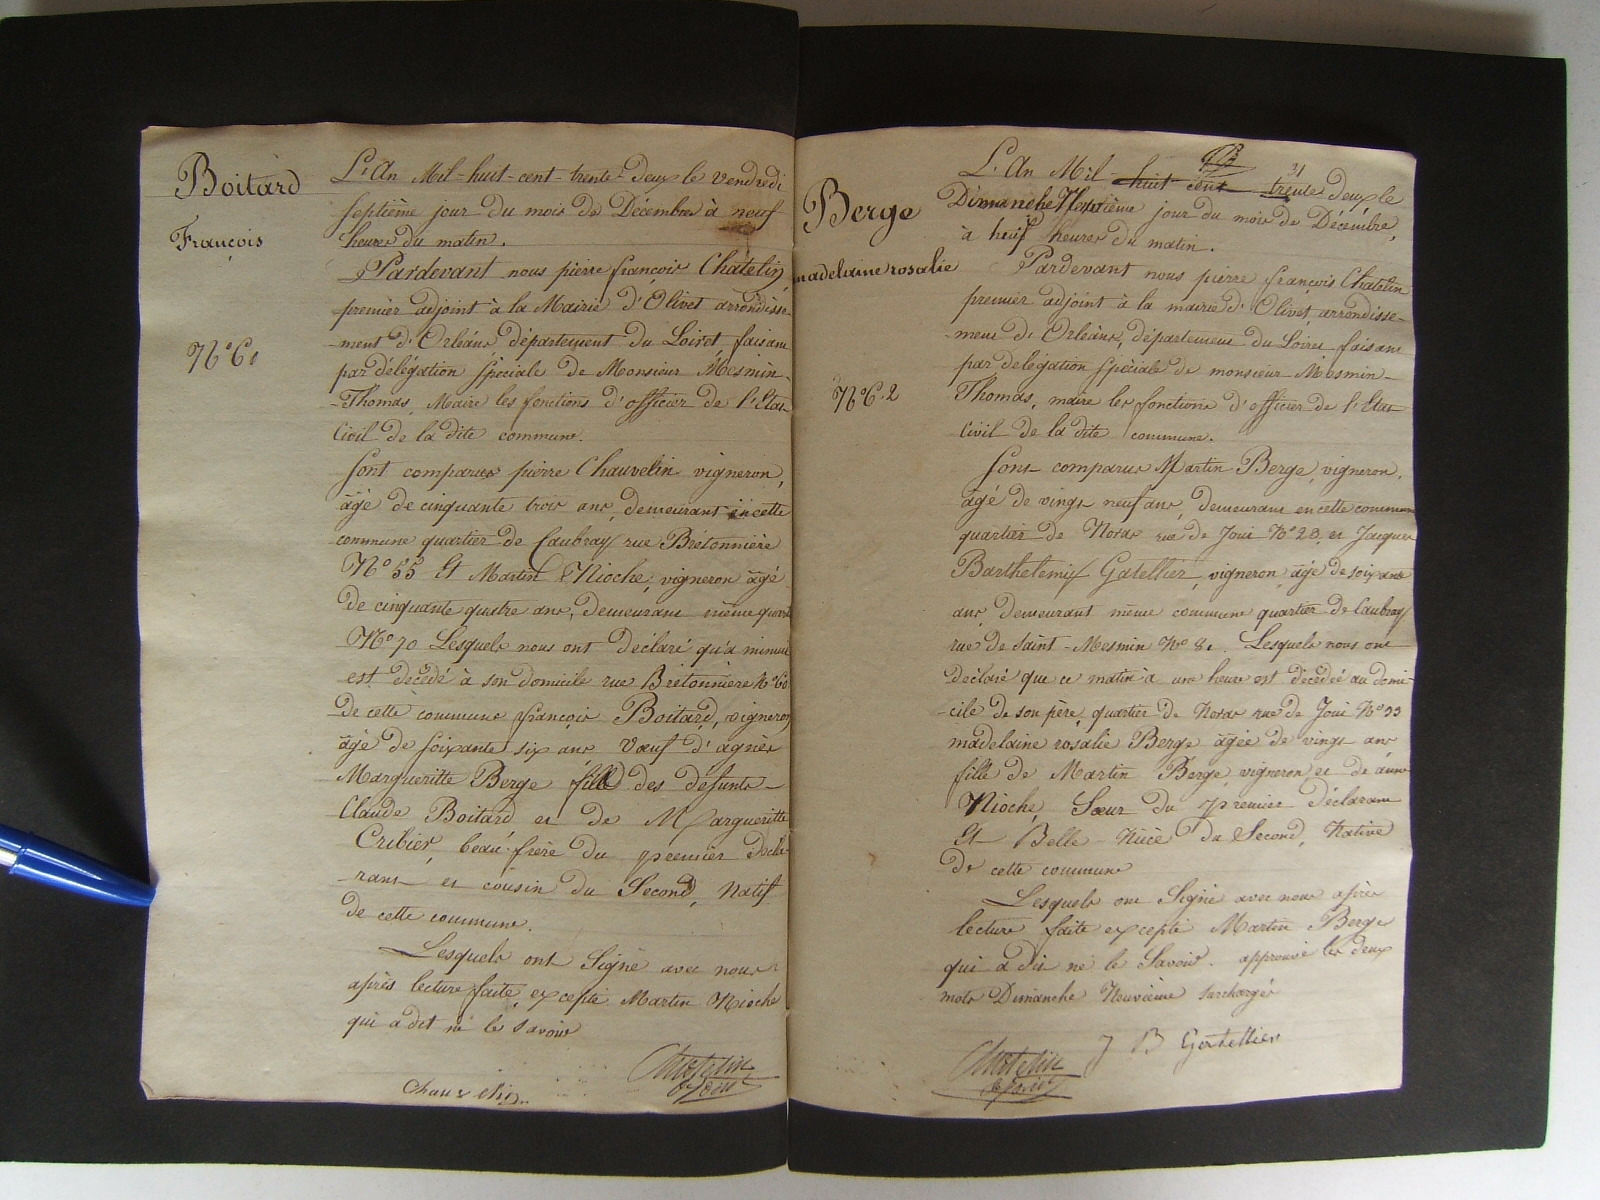 Boitard
François
N° 61
L'An Mil-huit-cent-trente-Deux le vendredi
septième jour du mois de Décembre à neuf
heures du matin.
Pardevant nous pierre françois Chatelin,
premier adjoint à la Mairie d'Olivet arrondisse-
-ment d'Orléans département du Loiret, faisant
par délégation spéciale de Monsieur Mesmin-
-Thomas, Maire les fonctions d'officier de l'Etat
Civil de la dite commune.
sont comparus pierre Chauvelin vigneron,
âgé de cinquante trois ans, demeurant en cette
commune quartier de Caubray rue Bretonnière
N° 55 Et Martin Nioche, vigneron âgé
de cinquante quatre ans, demeurant même quart
N° 70 Lesquels nous ont déclaré qu'à minuit
est décédé à son domicile rue Bretonnière N° 60
de cette commune françois Boitard, vigneron
âgé de soixante six ans Vœuf d'agnès
Margueritte Berge fille des défunts-
Claude Boitard et de Margueritte
Cribier, beau-frère du premier décla-
-rant et cousin du Second, Natif
de cette commune.
Lesquels ont Signé avec nous
après lecture faite, excepté Martin Nioche
qui a dit ne le savoir
Chauvelin
Chatelin
adjoint
Berge
madelaine rosalie
N° 62
L'An Mil-huit cent trente Deux le
Dimanche Neuvième jour du mois de Décembre,
à neuf heures du matin.
Pardevant nous pierre françois Chatelin
premier adjoint à la mairie d'Olivet, arrondisse-
-ment d'Orléans, département du Loiret faisant
par délégation spéciale de monsieur Mesmin-
Thomas, maire les fonctions d'officier de l'Etat
Civil de la dite commune.
sont comparus Martin Berge, vigneron,
âgé de vingt neuf ans, demeurant en cette commun
quartier de Noras rue de Joui N° 28, et Jacques
Barthelemy Gatellier, vigneron, âgé de soixante
ans, demeurant même commune quartier de Caubray
rue de Saint-Mesmin N° 81. Lesquels nous ont
déclaré que ce matin à une heure est décédée au domi-
-cile de son père, quartier de Noras rue de Joui N° 33
madelaine rosalie Berge âgée de vingt ans
fille de Martin Berge, vigneron, et de anne
Nioche, Sœur du premier déclarant
Et Belle-Nièce du Second, Native
de cette commune
Lesquels ont Signé avec nous après
lecture faite excepté Martin Berge
qui a dit ne le Savoir. approuvé les deux
mots Dimanche Neuvième surchargés
J B Gatellier
Chatelin
adjoint